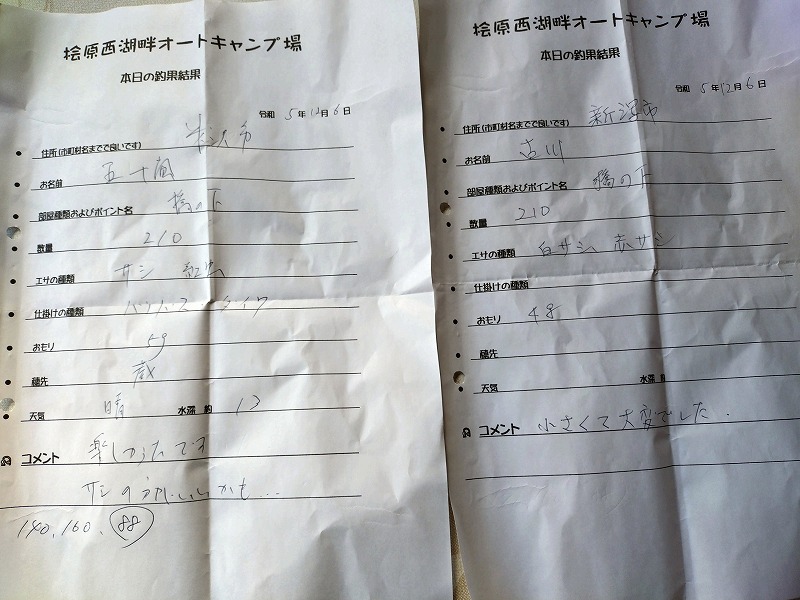 桧原西湖畔オートキャンプ場
本日の釣果結果
令和 5年12月6日
住所(市町村名までで良いです) 米沢市
お名前 五十嵐
部屋種類およびポイント名 橋の下
数量 210
エサの種類 サシ 紅虫
仕掛けの種類
おもり 5g
穂先
天気 晴 水深 約 12
コメント 楽しかったです
サシの方がいいかも…
140, 160, 88
桧原西湖畔オートキャンプ場
本日の釣果結果
令和 5年12月6日
住所(市町村名までで良いです) 新潟市
お名前 古川
部屋種類およびポイント名 橋の下
数量 210
エサの種類 白サシ 赤サシ
仕掛けの種類
おもり
穂先
天気 水深 約
コメント 小さくて大変でした.